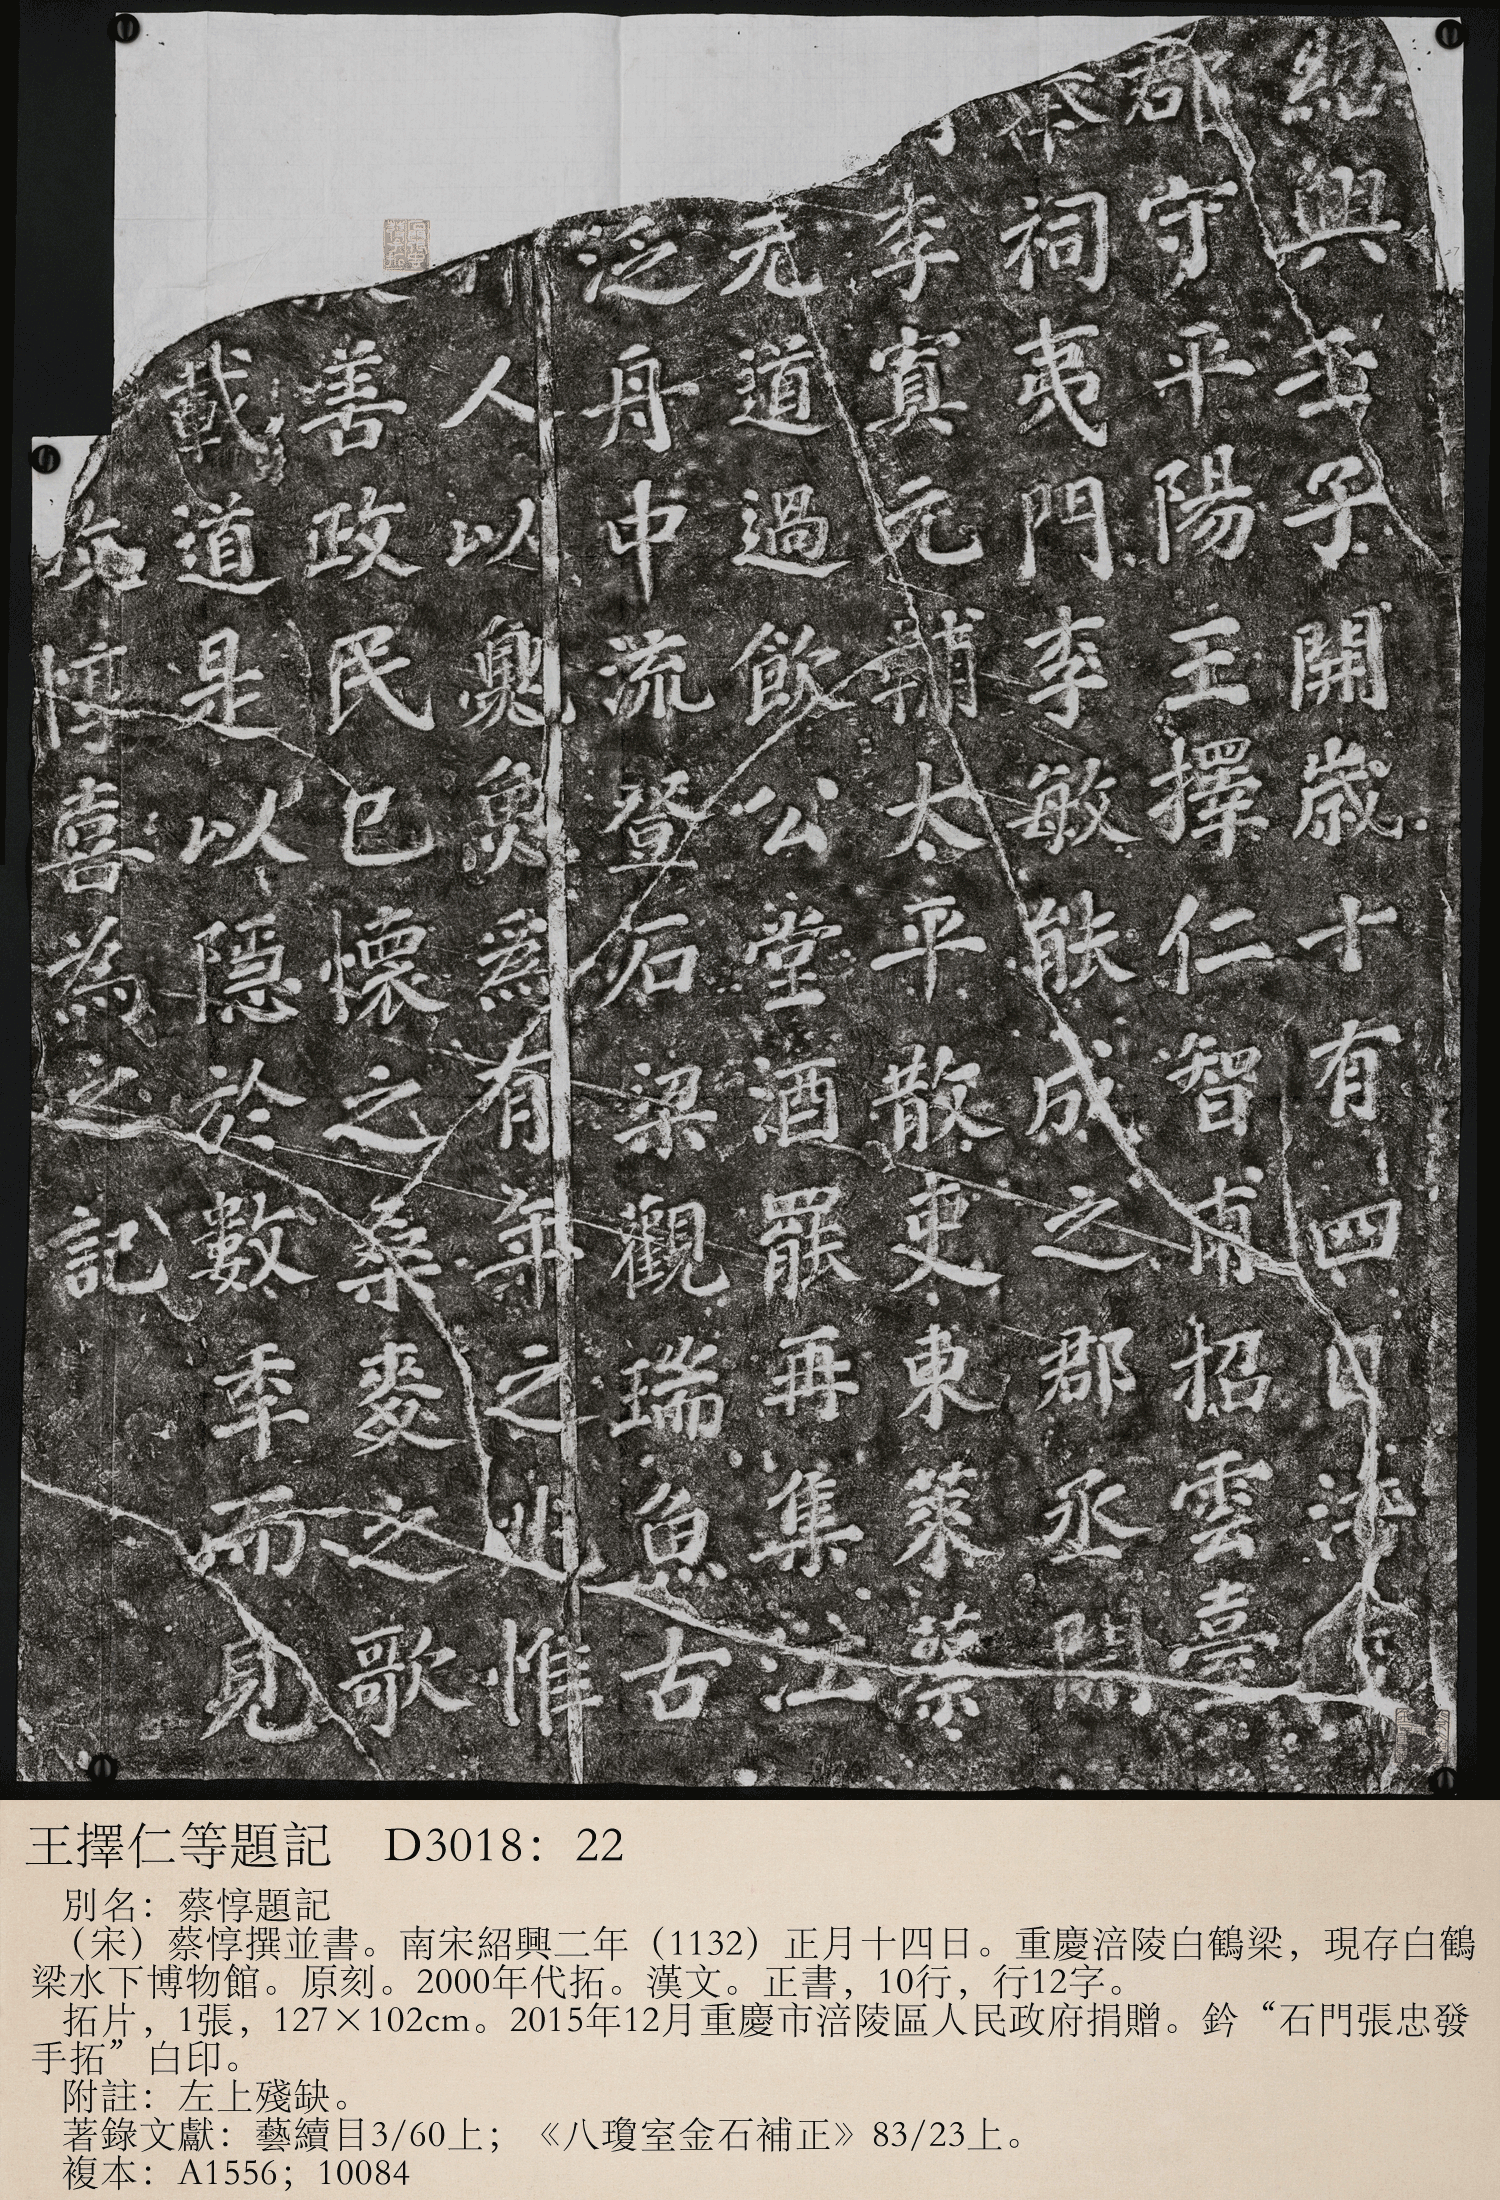 紹興壬子開歲十有四日涪
郡守平陽王擇仁智甫招雲臺
奉祠夷門李敏能成之郡丞開
李寘元輔太平散吏東萊蔡
元道過飲公堂酒罷再集江
泛舟中流登石梁觀瑞魚古
人以夢魚爲有年之兆惟
善政民已懷之桑麥之歌
載道是以隱於數年而見
蔡惇喜為之記
王擇仁等題記 D3018：22
別名：蔡惇題記
（宋）蔡惇撰並書。南宋紹興二年（1132）正月十四日。重慶涪陵白鶴梁，現存白鶴
梁水下博物館。原刻。2000年代拓。漢文。正書，10行，行12字。
拓片，1張，127×102cm。2015年12月重慶市涪陵區人民政府捐贈。鈐“石門張忠發
手拓”白印。
附註：左上殘缺。
著錄文獻：藝續目3/60上；《八瓊室金石補正》83/23上。
複本：A1556；10084